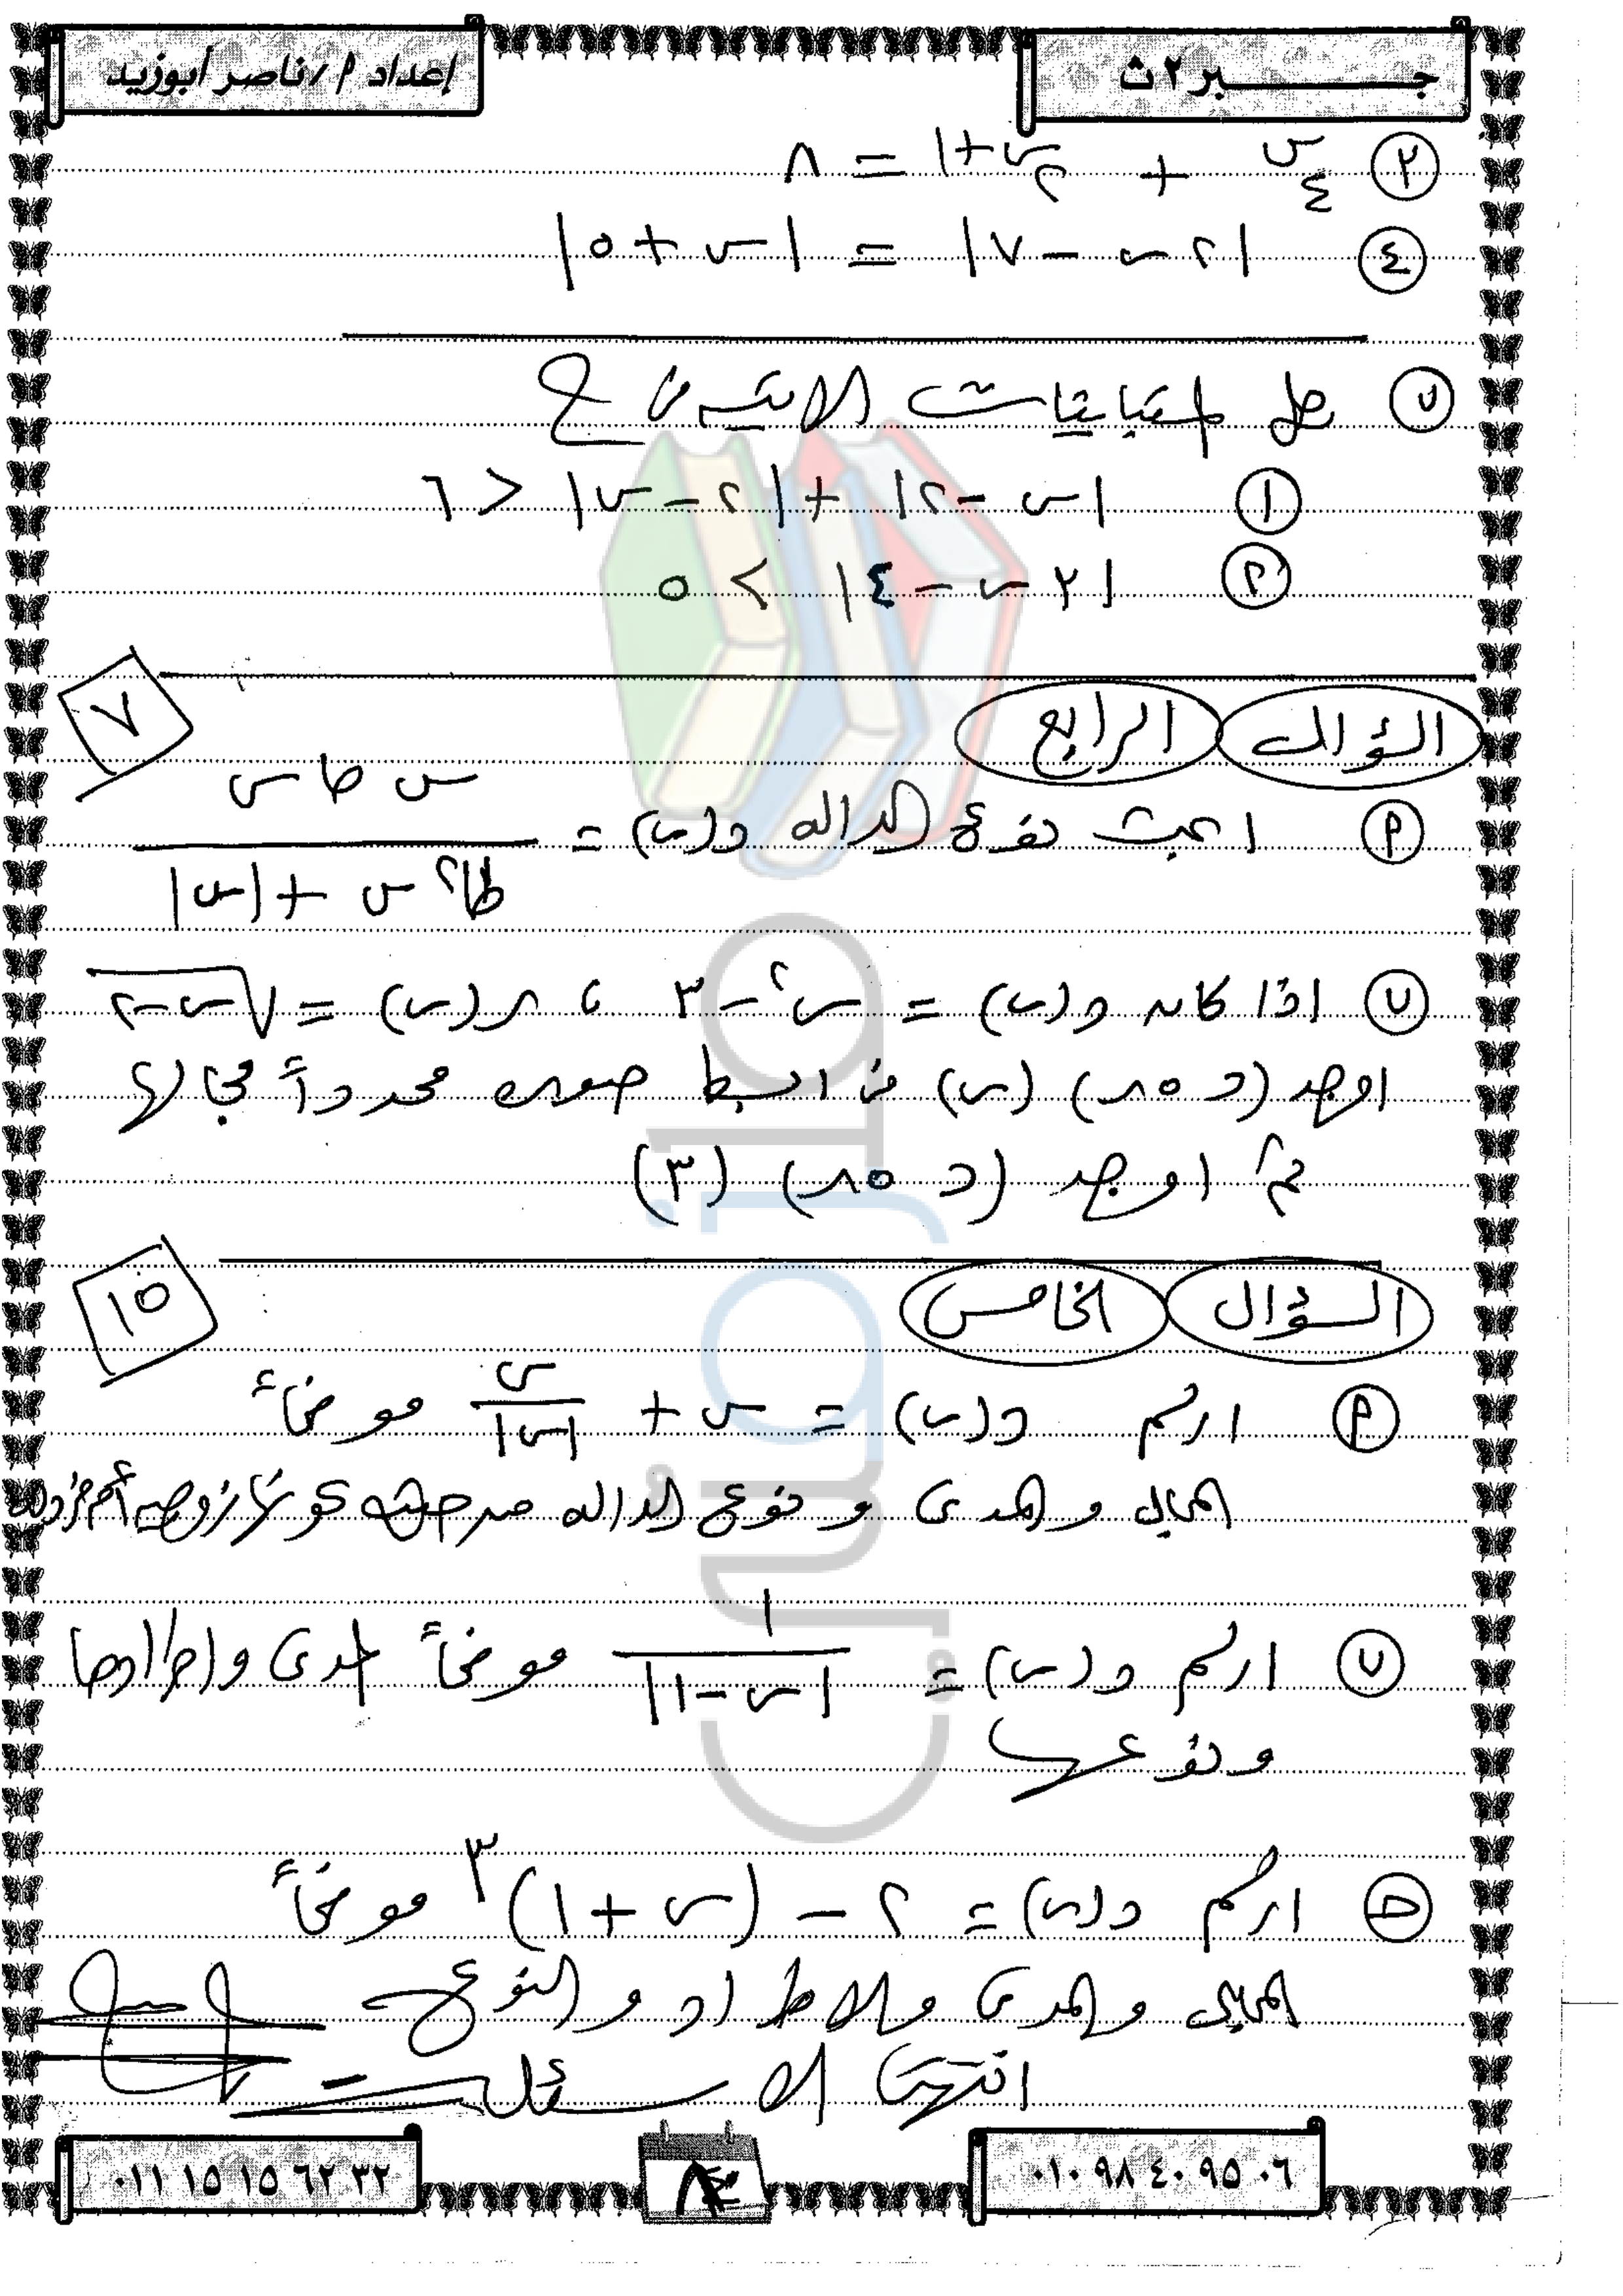 جبر ٢ ث
إعداد م / ناصر أبوزيد
(٢) ٤^س + ٢^(س+١) = ٨
(٤) |٢س - ٧| = |س + ٥|
(ب) حل المتباينات الاتيه فى ح
(١) |س - ٢| + |٢ - س| < ٦
(٢) |٢س - ٤| > ٥
السؤال الرابع
٧
(أ) ابحث نوع الداله د(س) = (س حا س) / (طا٢ س + |س|)
(ب) اذا كان د(س) = س٢ - ٣ ، ر(س) = √(س - ٢)
اوجد (د ٥ ر) (س) فى ابسط صوره محدداً مجالها
ثم اوجد (د ٥ ر) (٣)
السؤال الخامس
١٥
(أ) ارسم د(س) = س + س/|س| موضحاً
المجال والمدى ونوع الداله من حيث كونها زوجيه أم فرديه
(ب) ارسم د(س) = ١/|س - ١| موضحاً المدى واطرادها
ونوعها
(حـ) ارسم د(س) = ٢ - (س + ١)^٣ موضحاً
المجال والمدى والاطراد والنوع
انتهت الاسئلة
٠١٠ ٩٨ ٤٠ ٩٥ ٠٦
٠١١ ١٥ ١٥ ٦٢ ٣٢